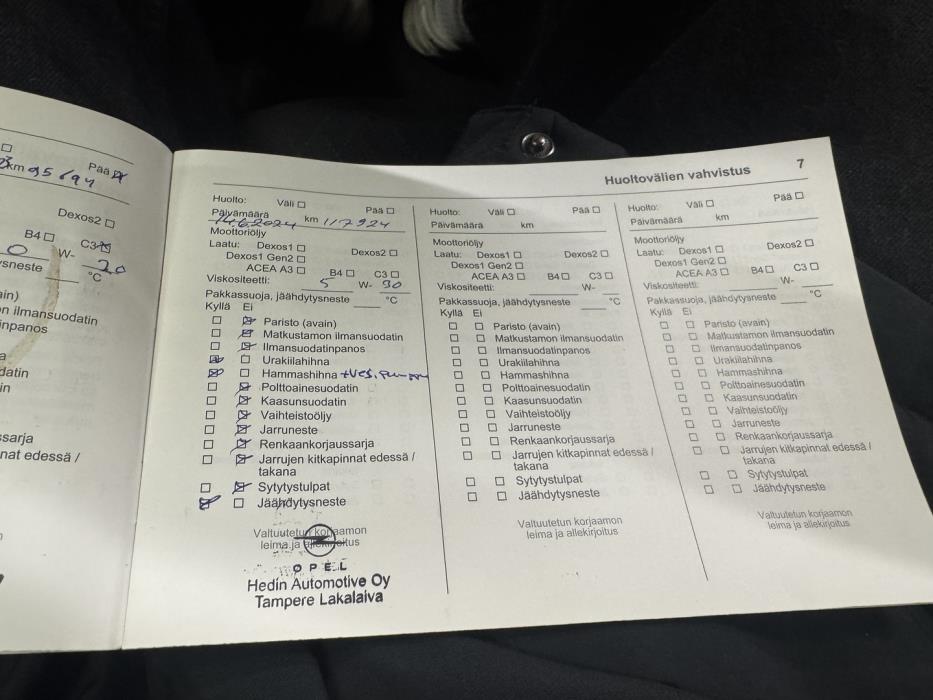 km 95194 Pää
Dexos2
B4 C3
0 W- 20
sneste °C
ain)
n ilmansuodatin
inpanos
a
datin
in
ssarja
nat edessä /
Huoltovälien vahvistus 7
Huolto: Väli Pää
Päivämäärä 14.6.2024 km 117924
Moottoriöljy
Laatu: Dexos1 Dexos2
Dexos1 Gen2
ACEA A3 B4 C3
Viskositeetti: 5 W- 30
Pakkassuoja, jäähdytysneste °C
Kyllä Ei
Paristo (avain)
Matkustamon ilmansuodatin
Ilmansuodatinpanos
Urakiilahihna
Hammashihna +ves.pumppu
Polttoainesuodatin
Kaasunsuodatin
Vaihteistoöljy
Jarruneste
Renkaankorjaussarja
Jarrujen kitkapinnat edessä /
takana
Sytytystulpat
Jäähdytysneste
Valtuutetun korjaamon
leima ja allekirjoitus
OPEL
Hedin Automotive Oy
Tampere Lakalaiva
Huolto: Väli Pää
Päivämäärä km
Moottoriöljy
Laatu: Dexos1 Dexos2
Dexos1 Gen2
ACEA A3 B4 C3
Viskositeetti: W-
Pakkassuoja, jäähdytysneste °C
Kyllä Ei
Paristo (avain)
Matkustamon ilmansuodatin
Ilmansuodatinpanos
Urakiilahihna
Hammashihna
Polttoainesuodatin
Kaasunsuodatin
Vaihteistoöljy
Jarruneste
Renkaankorjaussarja
Jarrujen kitkapinnat edessä /
takana
Sytytystulpat
Jäähdytysneste
Valtuutetun korjaamon
leima ja allekirjoitus
Huolto: Väli Pää
Päivämäärä km
Moottoriöljy
Laatu: Dexos1 Dexos2
Dexos1 Gen2
ACEA A3 B4 C3
Viskositeetti: W-
Pakkassuoja, jäähdytysneste °C
Kyllä Ei
Paristo (avain)
Matkustamon ilmansuodatin
Ilmansuodatinpanos
Urakiilahihna
Hammashihna
Polttoainesuodatin
Kaasunsuodatin
Vaihteistoöljy
Jarruneste
Renkaankorjaussarja
Jarrujen kitkapinnat edessä /
takana
Sytytystulpat
Jäähdytysneste
Valtuutetun korjaamon
leima ja allekirjoitus